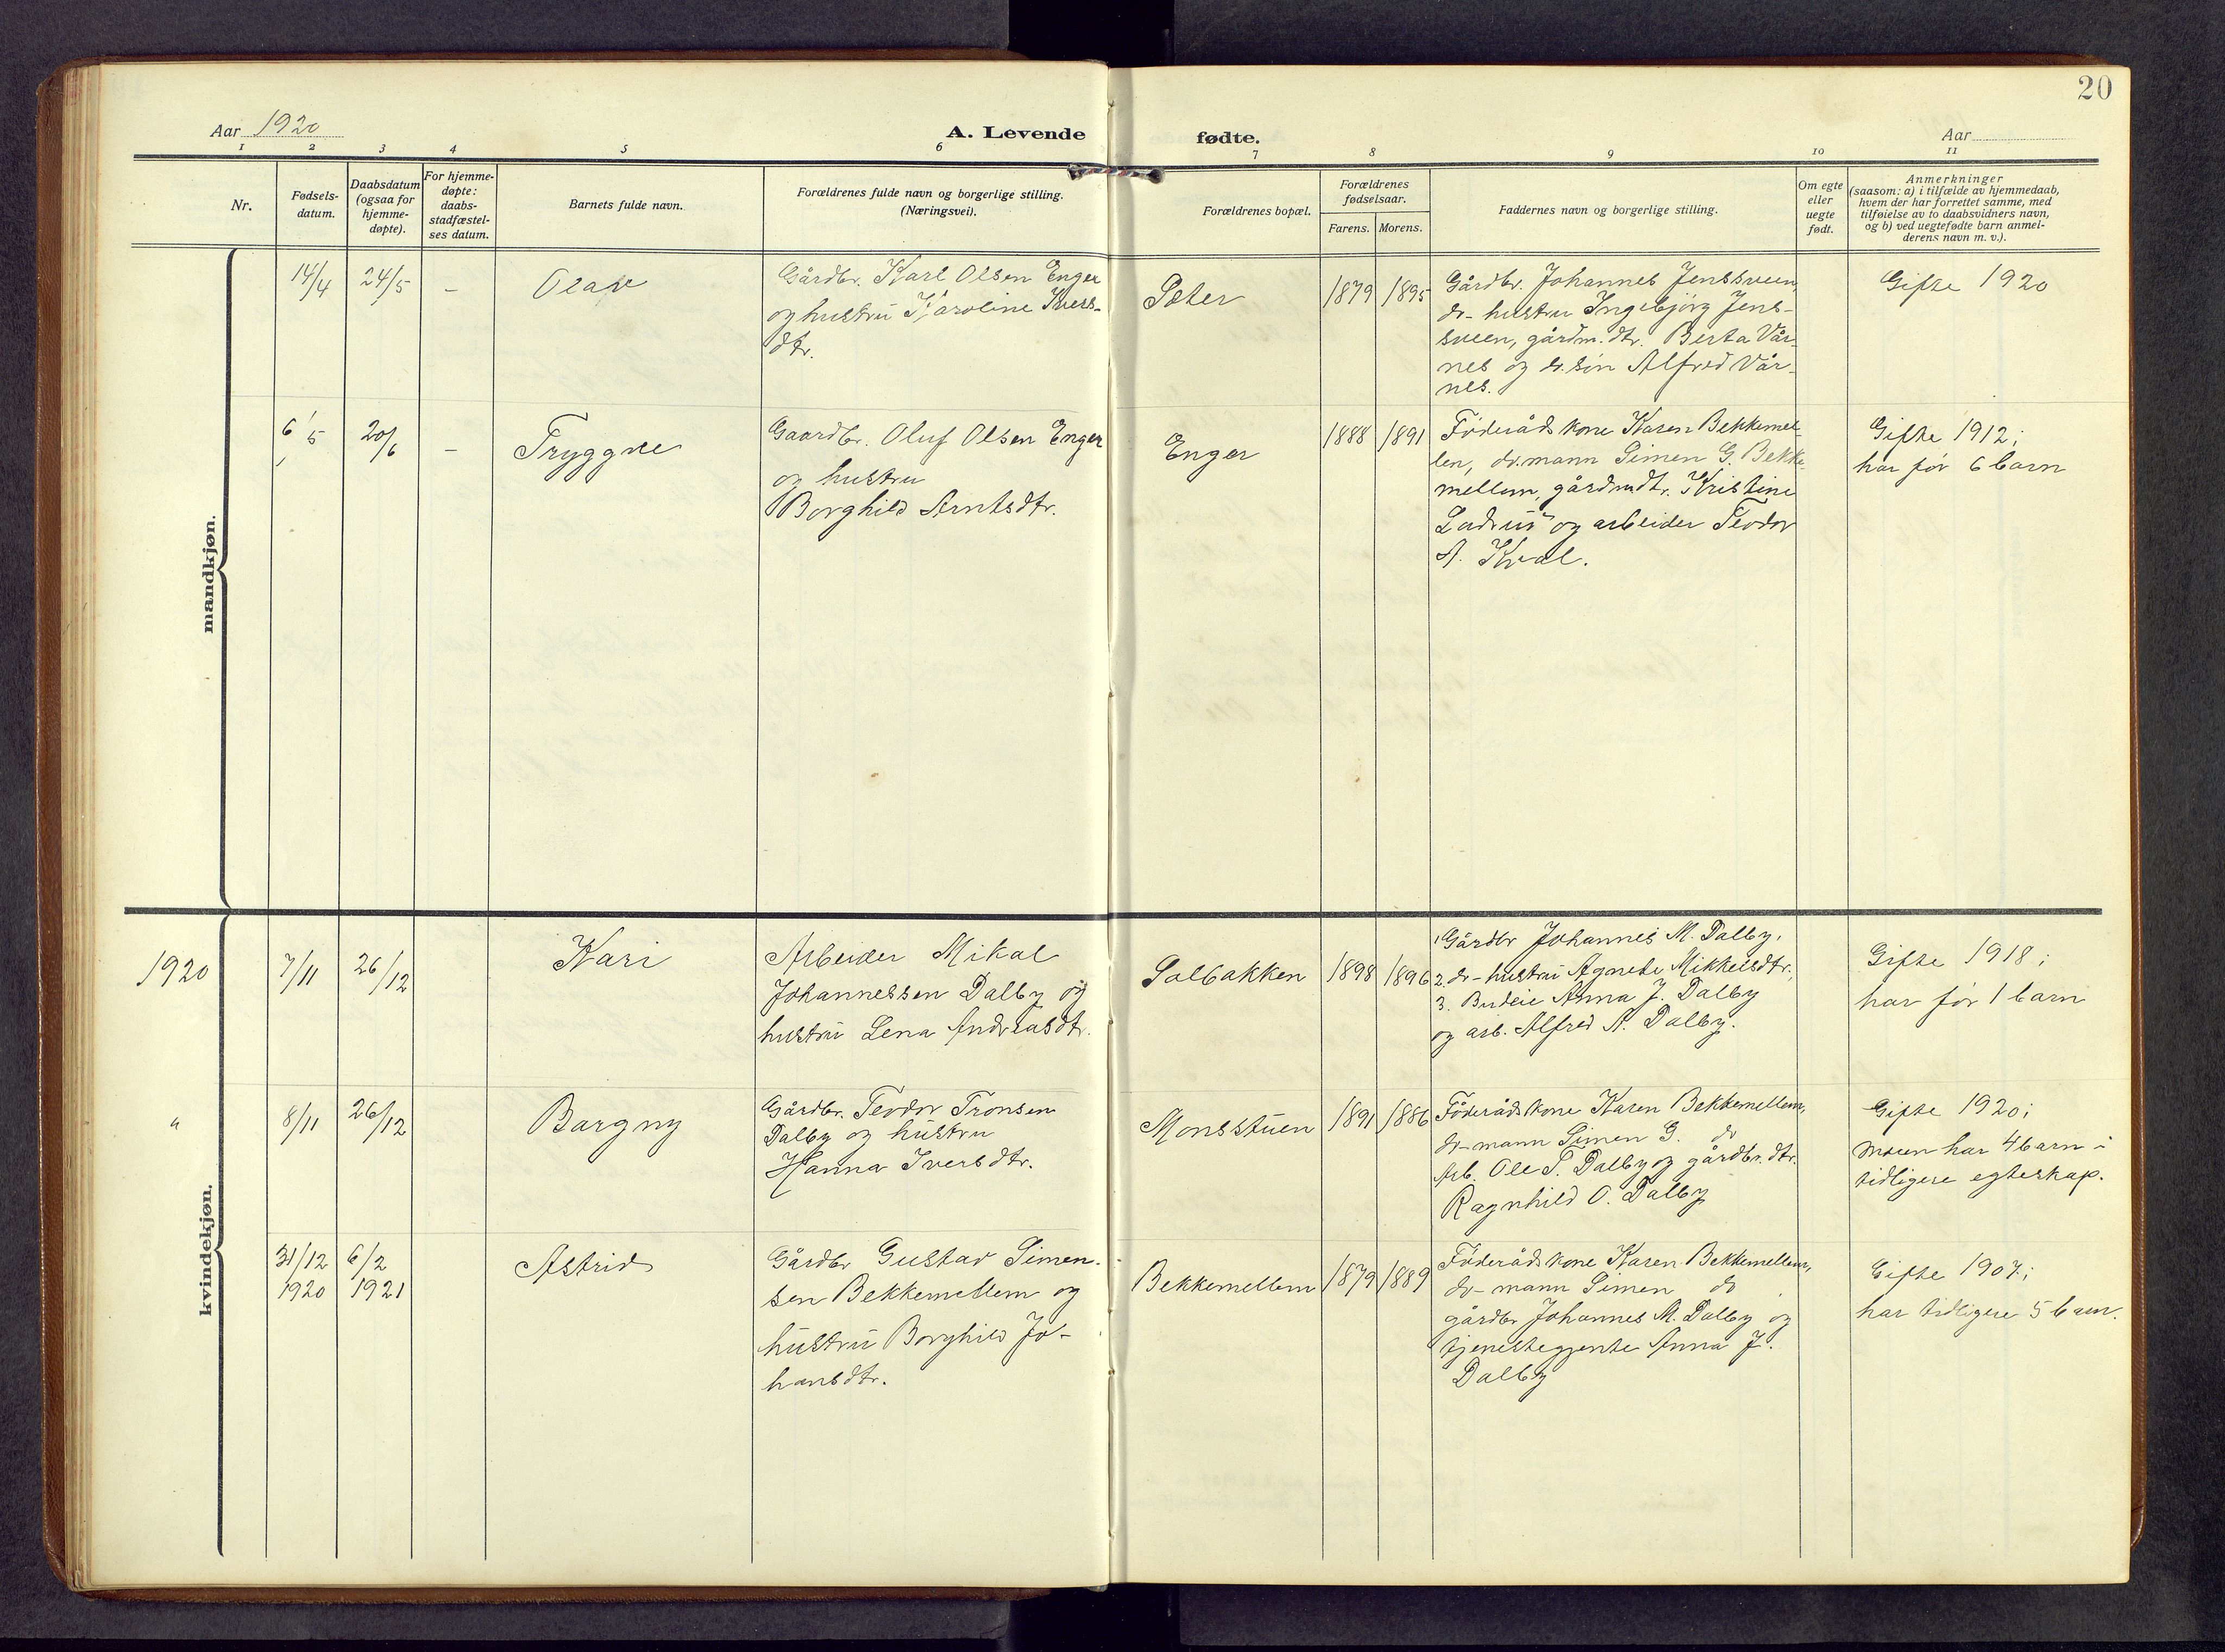 20
Aar 1920
A. Levende fødte.
Aar
1 2 3 4 5 6 7 8 9 10 11
Nr.
Fødsels-
datum.
Daabsdatum
(ogsaa for
hjemme-
døpte).
For hjemme-
døpte:
daabs-
stadfæstel-
ses datum.
Barnets fulde navn.
Forældrenes fulde navn og borgerlige stilling.
(Næringsvei).
Forældrenes bopæl.
Forældrenes
fødselsaar.
Farens. Morens.
Faddernes navn og borgerlige stilling.
Om egte
eller
uegte
født.
Anmerkninger
(saasom: a) i tilfælde av hjemmedaab,
hvem der har forrettet samme, med
tilføielse av to daabsvidners navn,
og b) ved uegtefødte barn anmel-
derens navn m. v.).
mandkjøn.
14/4
24/5
-
Olaf
Gårdbr. Karl Olsen Enger
og hustru Karoline Ivers-
dtr.
Sæter
1879
1895
Gårdbr. Johannes Jenssveen,
do- hustru Ingebjørg Jens-
sveen, gårdm.dtr. Berta Vår-
nes og do. søn Alfred Vår-
nes.
Gifte 1920
6/5
20/6
-
Tryggve
Gaardbr. Oluf Olsen Enger
og hustru
Borghild Arntsdtr.
Enger
1888
1891
Føderåds kone Karen Bekkemel-
len, do. mann Simen G. Bekke-
mellem, gårdmdtr. Kristine
og arbeider Teodor
A. Kval.
Gifte 1912;
har før 6 barn
kvindekjøn.
1920
7/11
26/12
Kari
Arbeider Mikal
Johannessen Dalby og
hustru Lena Andreasdtr.
Solbakken
1898
1896
1 Gårdbr Johannes M. Dalby,
2. do- hustru Agnete Mikkelsdtr,
3. Budeie Anna J. Dalby
og arb. Alfred A. Dalby.
Gifte 1918;
har før 1 barn
"
8/11
26/12
Bargny
Gårdbr. Teodor Tronsen
Dalby og hustru
Hanna Iversdtr.
Monsstuen
1891
1886
Føderåds kone Karen Bekkemellem,
do- mann Simen G. do
Arb. Ole T. Dalby og gårdbr. dtr.
Ragnhild O. Dalby
Gifte 1920;
moren har 4 barn i
tidligere egteskap.
31/12
1920
6/2
1921
Astrid
Gårdbr Gustav Simen-
sen Bekkemellem og
hustru Borghild Jo-
hansdtr.
Bekkemellem
1879
1889
Føderåds kone Karen Bekkemellem,
do- mann Simen do,
gårdbr Johannes M. Dalby og
tjenestegjente Anna J.
Dalby
Gifte 1907;
har tidligere 5 barn.